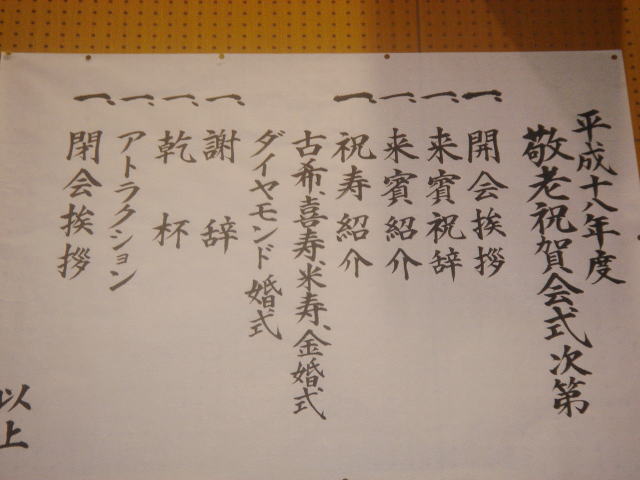 平成十八年度
敬老祝賀会式次第
一、開会挨拶
一、来賓祝辞
一、来賓紹介
一、祝寿紹介
古希、喜寿、米寿、金婚式
ダイヤモンド婚式
一、謝辞
一、乾杯
一、アトラクション
一、閉会挨拶
以上